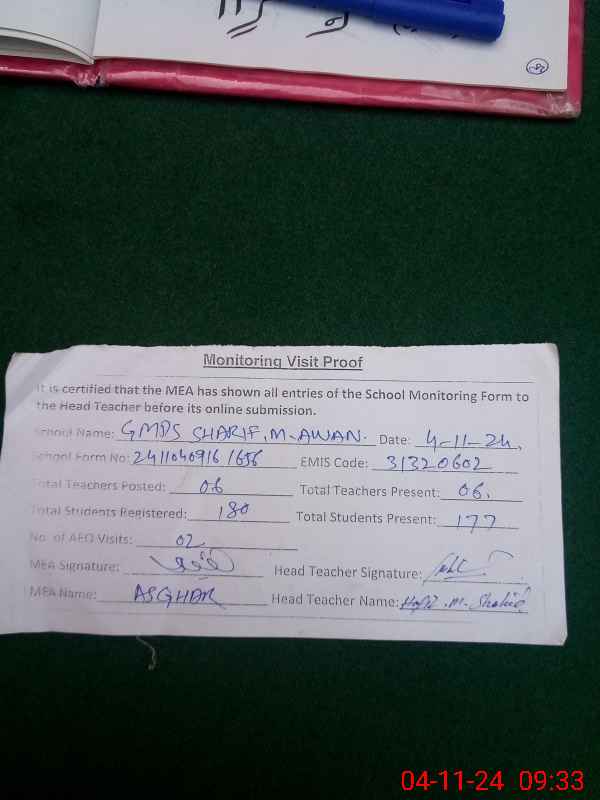 Monitoring Visit Proof
It is certified that the MEA has shown all entries of the School Monitoring Form to
the Head Teacher before its online submission.
School Name: GMPS SHARIF.M.AWAN. Date: 4-11-24,
School Form No: 2411040916 1656 EMIS Code: 31320602
Total Teachers Posted: 06 Total Teachers Present: 06.
Total Students Registered: 180 Total Students Present: 177
No. of AEO Visits: 02
MEA Signature: Head Teacher Signature:
MEA Name: ASGHAR Head Teacher Name: Hafiz .M. Shahid
04-11-24 09:33